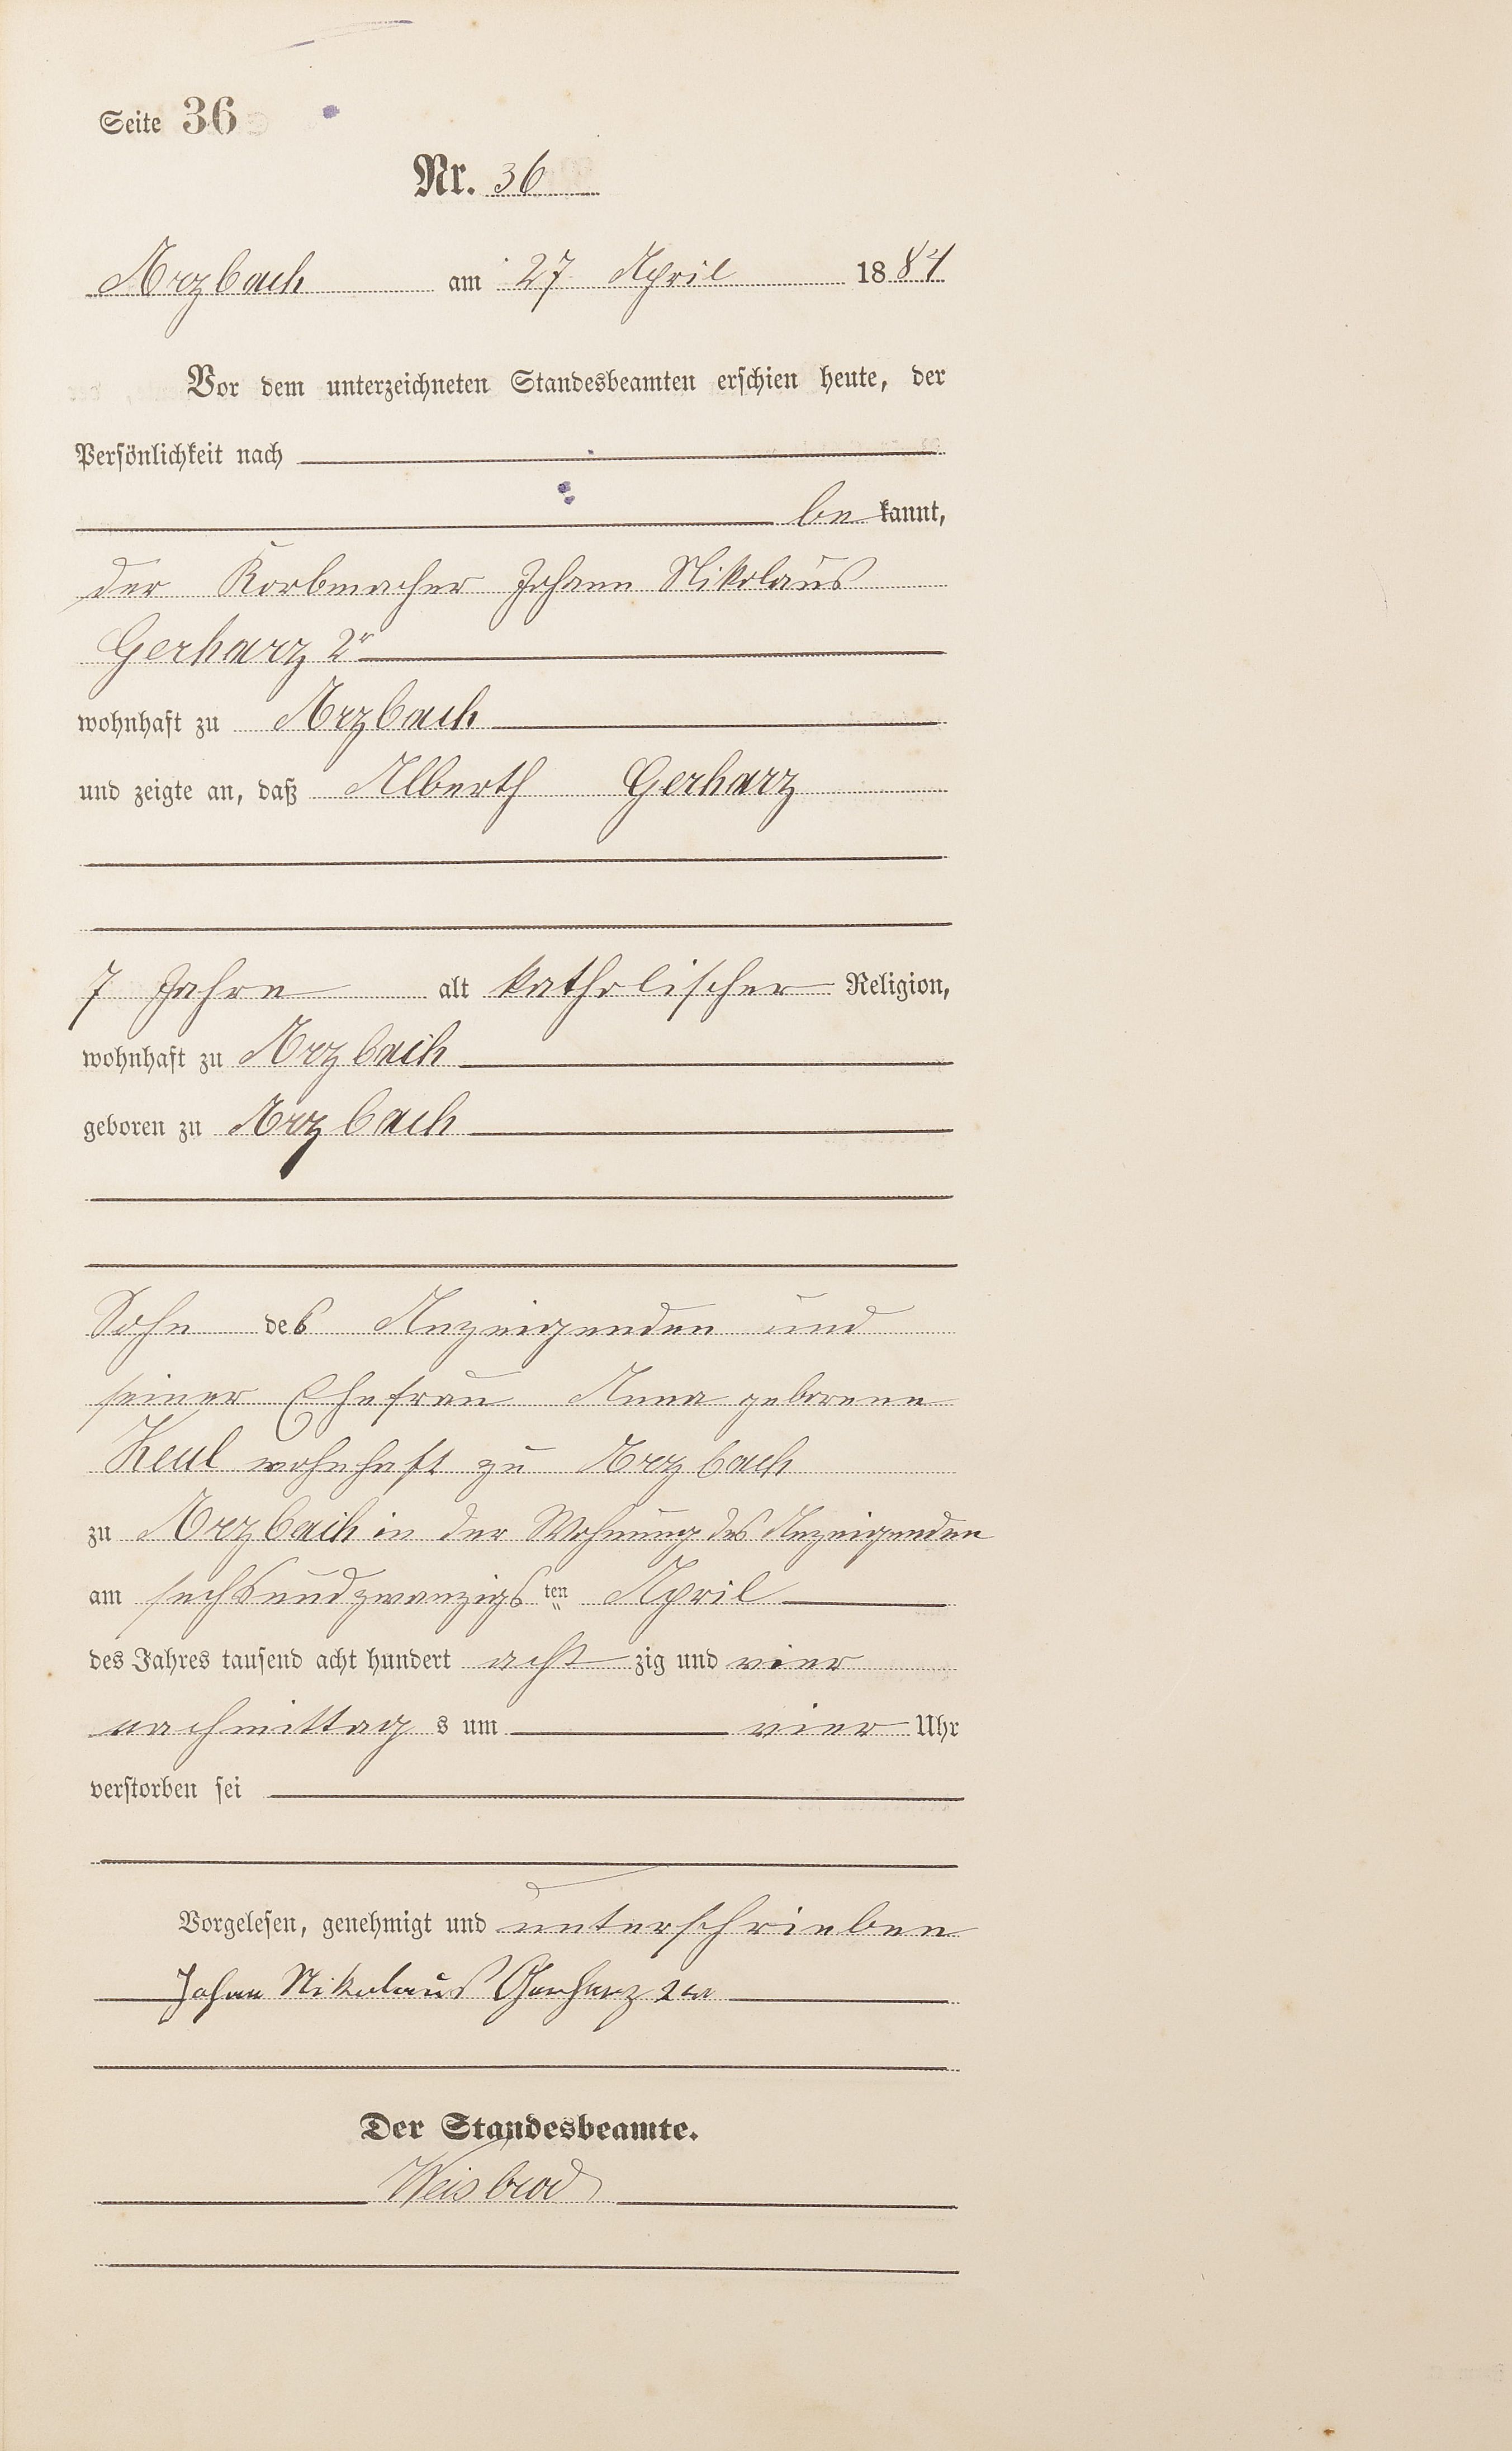 Seite 36
Nr. 36
Arzbach am 27 April 1884
Vor dem unterzeichneten Standesbeamten erschien heute, der
Persönlichkeit nach
be kannt,
der Korbmacher Johann Nikolaus
Gerharz 2r
wohnhaft zu Arzbach
und zeigte an, daß Alberth Gerharz
7 Jahre alt katholischer Religion,
wohnhaft zu Arzbach
geboren zu Arzbach
Sohn des Anzeigenden und
seiner Ehefrau Anna geborene
Keul wohnhaft zu Arzbach
zu Arzbach in der Wohnung des Anzeigenden
am sechsundzwanzigs ten April
des Jahres tausend acht hundert acht zig und vier
nachmittag s um vier Uhr
verstorben sei
Vorgelesen, genehmigt und unterschrieben
Johann Nikolaus Gerharz 2er
Der Standesbeamte.
Weisbrod